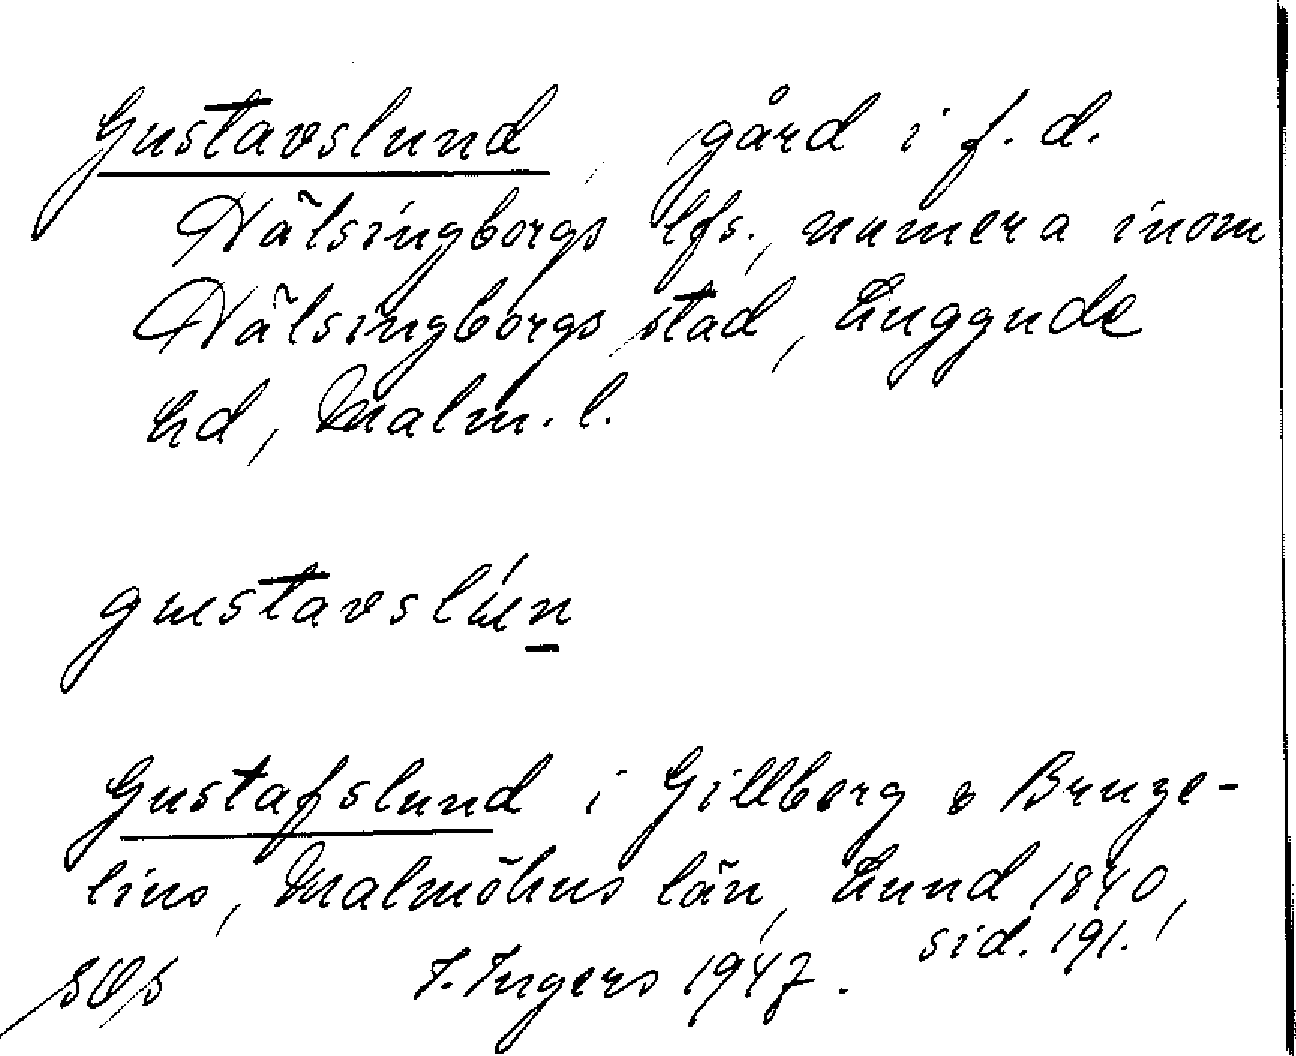 Gustavslund, gård i f.d.
Hälsingborgs lfs., numera inom
Hälsingborgs stad, Luggude
hd, Malm. l.
gustavslún
Gustafslund i Gillberg o Bruze-
lius, Malmöhus län, Lund 1840,
sid. 191.
I. Ingers 1947.